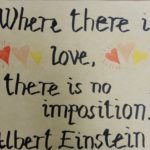 Where there is
love,
there is no
imposition.
Albert Einstein